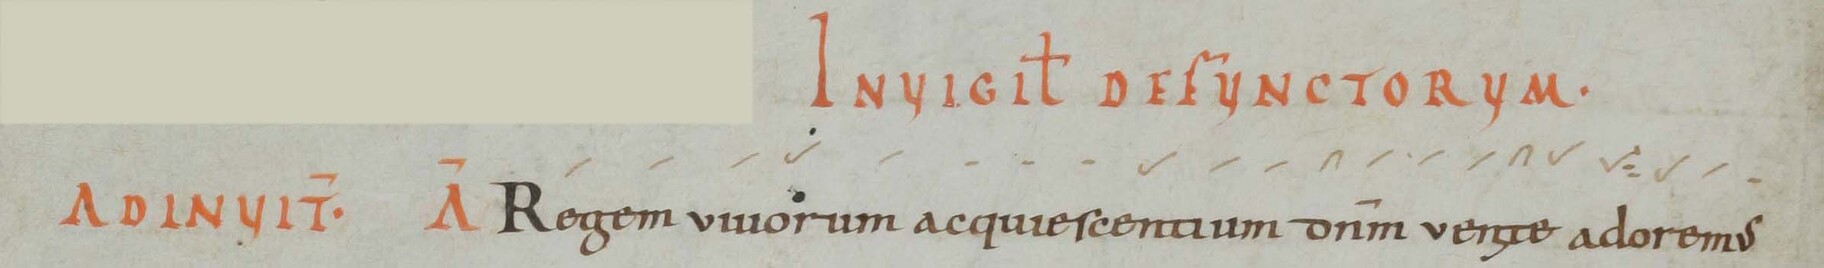 INVIGIT DEFVNCTORVM.
ADINVIT̄. Ā Regem viuorum acquiescentium dn̄m venite adoremus